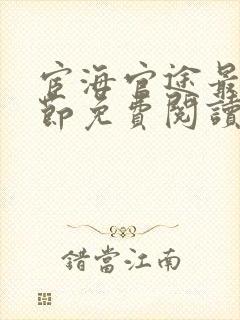 宦海官途最
節免費閱讀
錯當江南